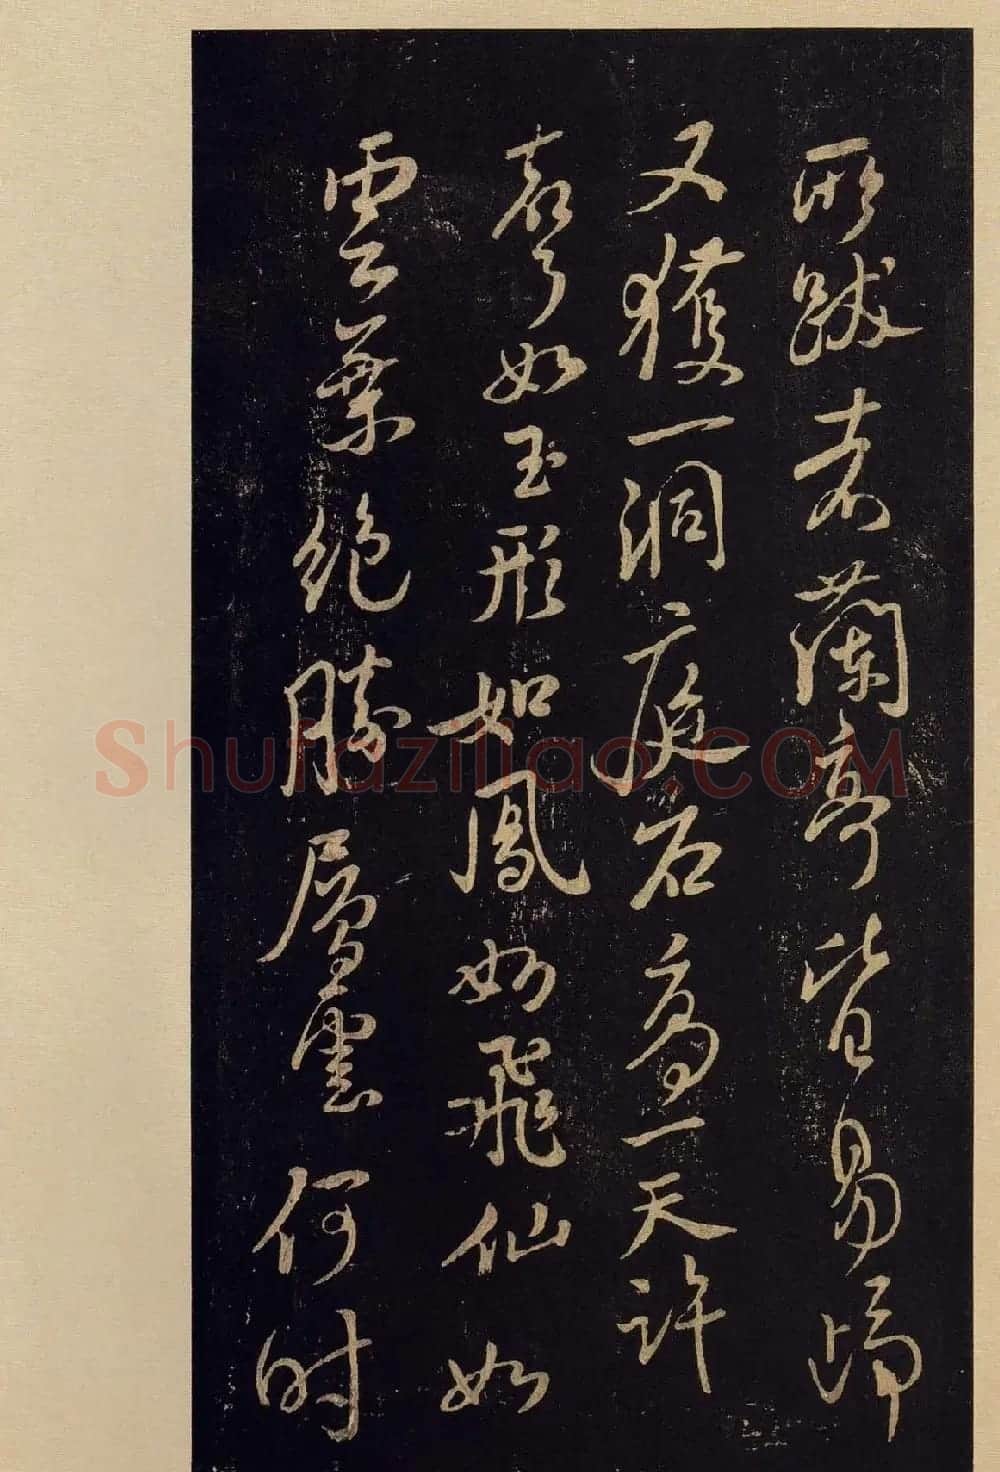 所跋者蘭亭皆易歸
又獲一洞庭石高一天許
聲如玉形如鳳如飛仙如
雲葉絶勝層雲何时
Shufaziliao.COM